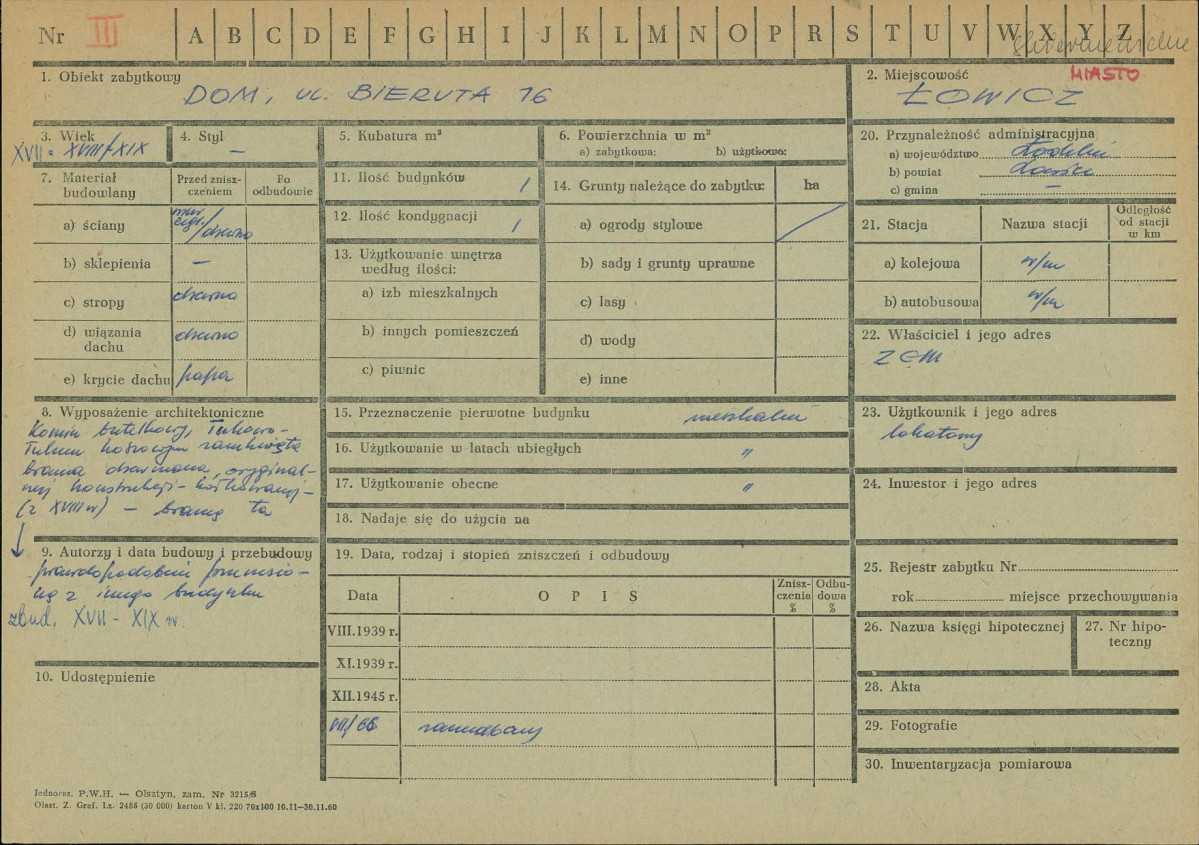 Nr III A B C D E F G H I J K L M N O P R S T U V W X Y Z
1. Obiekt zabytkowy
DOM, ul. BIERUTA 16
2. Miejscowość
MIASTO
ŁOWICZ
3. Wiek
XVII - XVIII/XIX
4. Styl
—
5. Kubatura m³
6. Powierzchnia w m²
a) zabytkowa: b) użytkowa:
7. Materiał budowlany
Przed znisz-
czeniem
Po
odbudowie
a) ściany mur cegł./drewno
b) sklepienia —
c) stropy drewno
d) wiązania
dachu drewno
e) krycie dachu papa
11. Ilość budynków 1
12. Ilość kondygnacji 1
13. Użytkowanie wnętrza
według ilości:
a) izb mieszkalnych
b) innych pomieszczeń
c) piwnic
14. Grunty należące do zabytku: ha
a) ogrody stylowe
b) sady i grunty uprawne
c) lasy
d) wody
e) inne
20. Przynależność administracyjna
a) województwo łódzkie
b) powiat
c) gmina —
21. Stacja Nazwa stacji Odległość
od stacji
w km
a) kolejowa w/m
b) autobusowa w/m
22. Właściciel i jego adres
8. Wyposażenie architektoniczne
Komin butelkowy, łukowo-
łukiem koszowym zamknięta
brama drewniana, oryginal-
nej konstrukcji -
(z XVIII w) - bramę ta
9. Autorzy i data budowy i przebudowy
prawdopodobnie przenisio-
ną z innego budynku
zbud. XVII - XIX w.
10. Udostępnienie
15. Przeznaczenie pierwotne budynku mieszkalne
16. Użytkowanie w latach ubiegłych "
17. Użytkowanie obecne "
18. Nadaje się do użycia na
19. Data, rodzaj i stopień zniszczeń i odbudowy
Data OPIS Znisz-
czenia
% Odbu-
dowa
%
VIII.1939 r.
XI.1939 r.
XII.1945 r.
VII/66 zaniedbany
23. Użytkownik i jego adres
lokatorzy
24. Inwestor i jego adres
25. Rejestr zabytku Nr
rok miejsce przechowywania
26. Nazwa księgi hipotecznej
27. Nr hipo-
teczny
28. Akta
29. Fotografie
30. Inwentaryzacja pomiarowa
Jednoraz. P.W.H. — Olsztyn, zam. Nr 3215/6
Olszt. Z. Graf. Lz. 2486 (30 000) karton V kl. 220 70x100 10.11—30.11.60